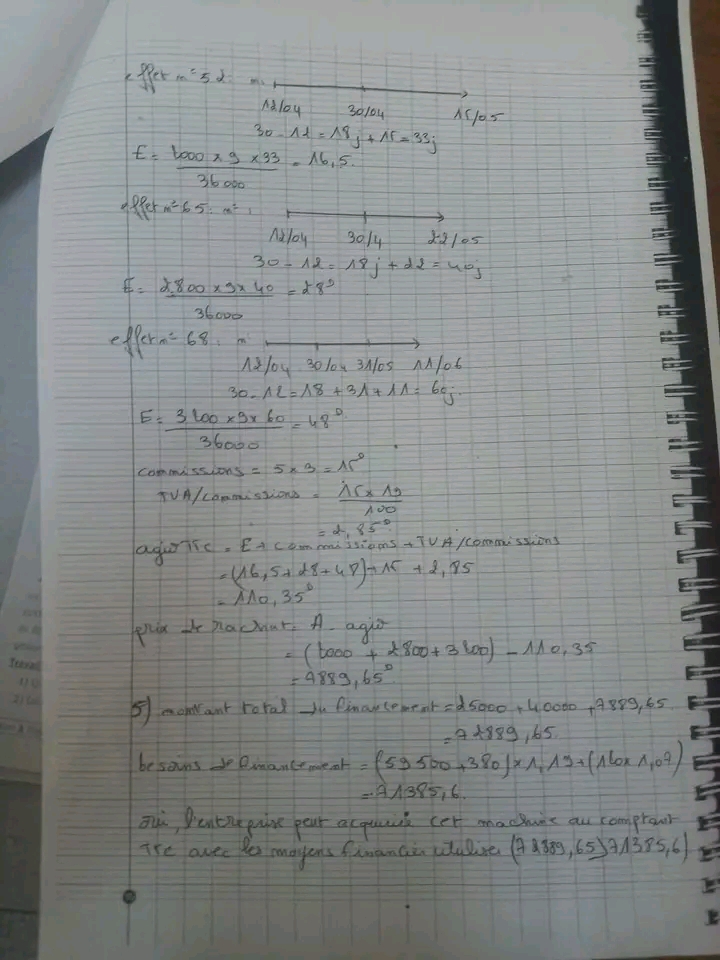 effet n° 52: n:
12/04 30/04 15/05
30-12 = 18j + 15 = 33j
E = 2000 x 9 x 33 = 16,5.
36000
effet n° 65: n° :
12/04 30/4 22/05
30-12 = 18j + 22 = 40j
E = 2800 x 9 x 40 = 28D
36000
effet n° 68: n:
12/04 30/04 31/05 11/06
30-12 = 18 + 31 + 11 = 60j.
E = 3200 x 9 x 60 = 48D
36000
commissions = 5 x 3 = 15D
TVA/commissions = 15 x 19
100
= 2,85D
agio TTC = E + commissions + TVA/commissions
= (16,5+28+48)+15 + 2,85
= 110,35D
prix de rachat = A - agio
= (2000 + 2800 + 3200) - 110,35
= 7889,65D
5) montant total du financement = 25000 + 40000 + 7889,65.
= 72889,65.
besoins de financement = (59500+380) x 1,19 + (120 x 1,07)
= 71385,6.
oui, l'entreprise peut acquérir cet machine au comptant
TTC avec les moyens financier utiliser (72889,65 > 71385,6)